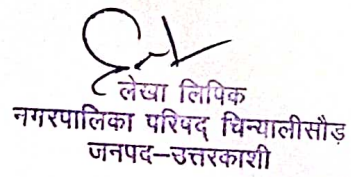 लेखा लिपिक
नगरपालिका परिषद् चिन्यालीसौड़
जनपद–उत्तरकाशी